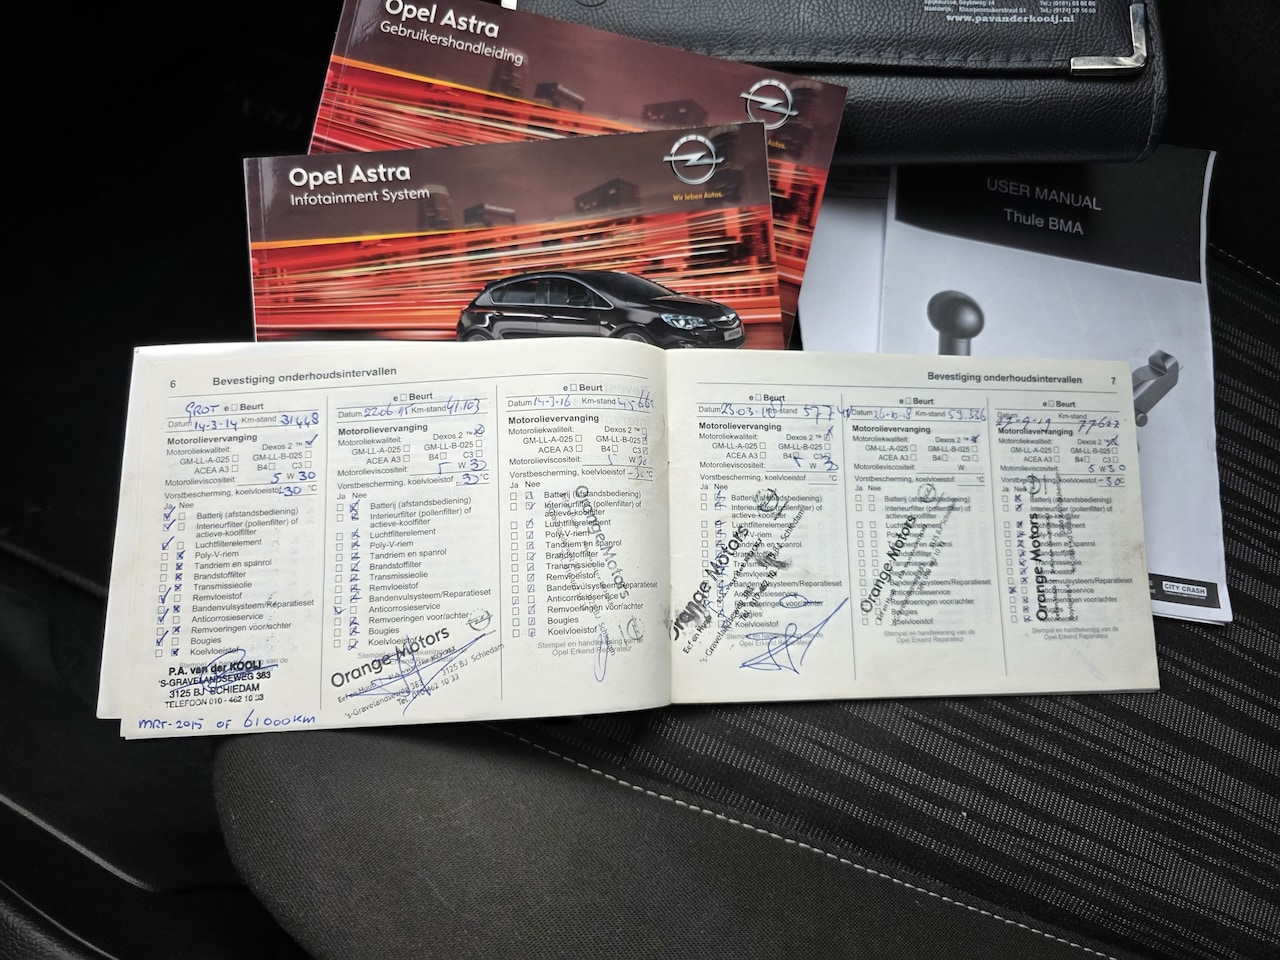 Opel Astra
Gebruikershandleiding
www.pavanderkooij.nl
Opel Astra
Infotainment System
Wir leben Autos.
USER MANUAL
Thule BMA
CITY CRASH
6 Bevestiging onderhoudsintervallen
GROT e Beurt
Datum 14-3-14 Km-stand 31448
Motorolievervanging
Motoroliekwaliteit: Dexos 2 ™
GM-LL-A-025 GM-LL-B-025
ACEA A3 B4 C3
Motorolieviscositeit: 5 W 30
Vorstbescherming, koelvloeistof -30 °C
Ja Nee
Batterij (afstandsbediening)
Interieurfilter (pollenfilter) of
actieve-koolfilter
Luchtfilterelement
Poly-V-riem
Tandriem en spanrol
Brandstoffilter
Transmissieolie
Remvloeistof
Bandenvulsysteem/Reparatieset
Anticorrosieservice
Remvoeringen voor/achter
Bougies
Koelvloeistof
P.A. van der KOOIJ
'S-GRAVELANDSEWEG 383
3125 BJ SCHIEDAM
TELEFOON 010 - 462 10 33
MRT-2015 OF 61000KM
e Beurt
Datum Km-stand 41.103
Motorolievervanging
Motoroliekwaliteit: Dexos 2 ™
GM-LL-A-025 GM-LL-B-025
ACEA A3 B4 C3
Motorolieviscositeit: W 30
Vorstbescherming, koelvloeistof °C
Ja Nee
Batterij (afstandsbediening)
Interieurfilter (pollenfilter) of
actieve-koolfilter
Luchtfilterelement
Poly-V-riem
Tandriem en spanrol
Brandstoffilter
Transmissieolie
Remvloeistof
Bandenvulsysteem/Reparatieset
Anticorrosieservice
Remvoeringen voor/achter
Bougies
Koelvloeistof
Stempel en handtekening van de
Orange Motors
's-Gravelandseweg 383
3125 BJ Schiedam
e Beurt
Datum 14-3-16 Km-stand
Motorolievervanging
Motoroliekwaliteit: Dexos 2 ™
GM-LL-A-025 GM-LL-B-025
ACEA A3 B4 C3
Motorolieviscositeit: W
Vorstbescherming, koelvloeistof °C
Ja Nee
Batterij (afstandsbediening)
Interieurfilter (pollenfilter) of
actieve-koolfilter
Luchtfilterelement
Poly-V-riem
Tandriem en spanrol
Brandstoffilter
Transmissieolie
Remvloeistof
Bandenvulsysteem/Reparatieset
Anticorrosieservice
Remvoeringen voor/achter
Bougies
Koelvloeistof
Stempel en handtekening van de
Opel Erkend Reparateur
Orange Motors
Bevestiging onderhoudsintervallen 7
e Beurt
Datum Km-stand
Motorolievervanging
Motoroliekwaliteit: Dexos 2 ™
GM-LL-A-025 GM-LL-B-025
ACEA A3 B4 C3
Motorolieviscositeit: W
Vorstbescherming, koelvloeistof °C
Ja Nee
Batterij (afstandsbediening)
Interieurfilter (pollenfilter) of
actieve-koolfilter
Luchtfilterelement
Poly-V-riem
Koelvloeistof
Stempel en handtekening van de
Opel Erkend Reparateur
Orange Motors
e Beurt
Datum Km-stand 59.336
Motorolievervanging
Motoroliekwaliteit: Dexos 2 ™
GM-LL-A-025 GM-LL-B-025
ACEA A3 B4 C3
Motorolieviscositeit: W
Vorstbescherming, koelvloeistof °C
Ja Nee
Batterij (afstandsbediening)
Interieurfilter (pollenfilter) of
actieve-koolfilter
Luchtfilterelement
Poly-V-riem
Tandriem en spanrol
Brandstoffilter
Transmissieolie
Remvloeistof
Bandenvulsysteem/Reparatieset
Anticorrosieservice
Remvoeringen voor/achter
Bougies
Koelvloeistof
Stempel en handtekening van de
Opel Erkend Reparateur
Orange Motors
e Beurt
Datum 27-9-19 Km-stand 77622
Motorolievervanging
Motoroliekwaliteit: Dexos 2 ™
GM-LL-A-025 GM-LL-B-025
ACEA A3 B4 C3
Motorolieviscositeit: 5 W 30
Vorstbescherming, koelvloeistof -30 °C
Ja Nee
Batterij (afstandsbediening)
Interieurfilter (pollenfilter) of
actieve-koolfilter
Luchtfilterelement
Poly-V-riem
Tandriem en spanrol
Brandstoffilter
Transmissieolie
Remvloeistof
Bandenvulsysteem/Reparatieset
Anticorrosieservice
Remvoeringen voor/achter
Bougies
Koelvloeistof
Stempel en handtekening van de
Opel Erkend Reparateur
Orange Motors